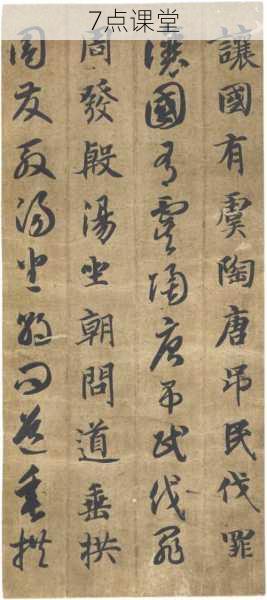 7点课堂
讓國有虞陶唐吊民伐罪
讓國有虞陶唐吊民伐罪
周發殷湯坐朝問道垂拱
周發殷湯坐朝問道垂拱